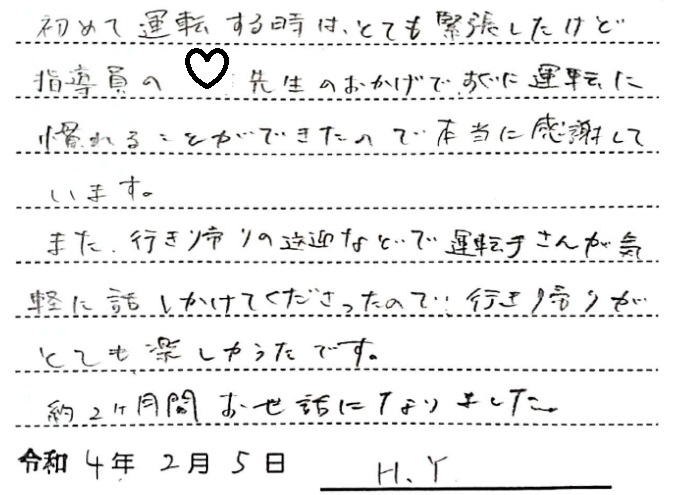 初めて運転する時は、とても緊張したけど
指導員の♡先生のおかげですぐに運転に
慣れることができたので本当に感謝して
います。
また、行き帰りの送迎などで運転手さんが気
軽に話しかけてくださったので、行き帰りが
とても楽しかったです。
約2ヶ月間お世話になりました。
令和 4年 2月 5日
H.Y